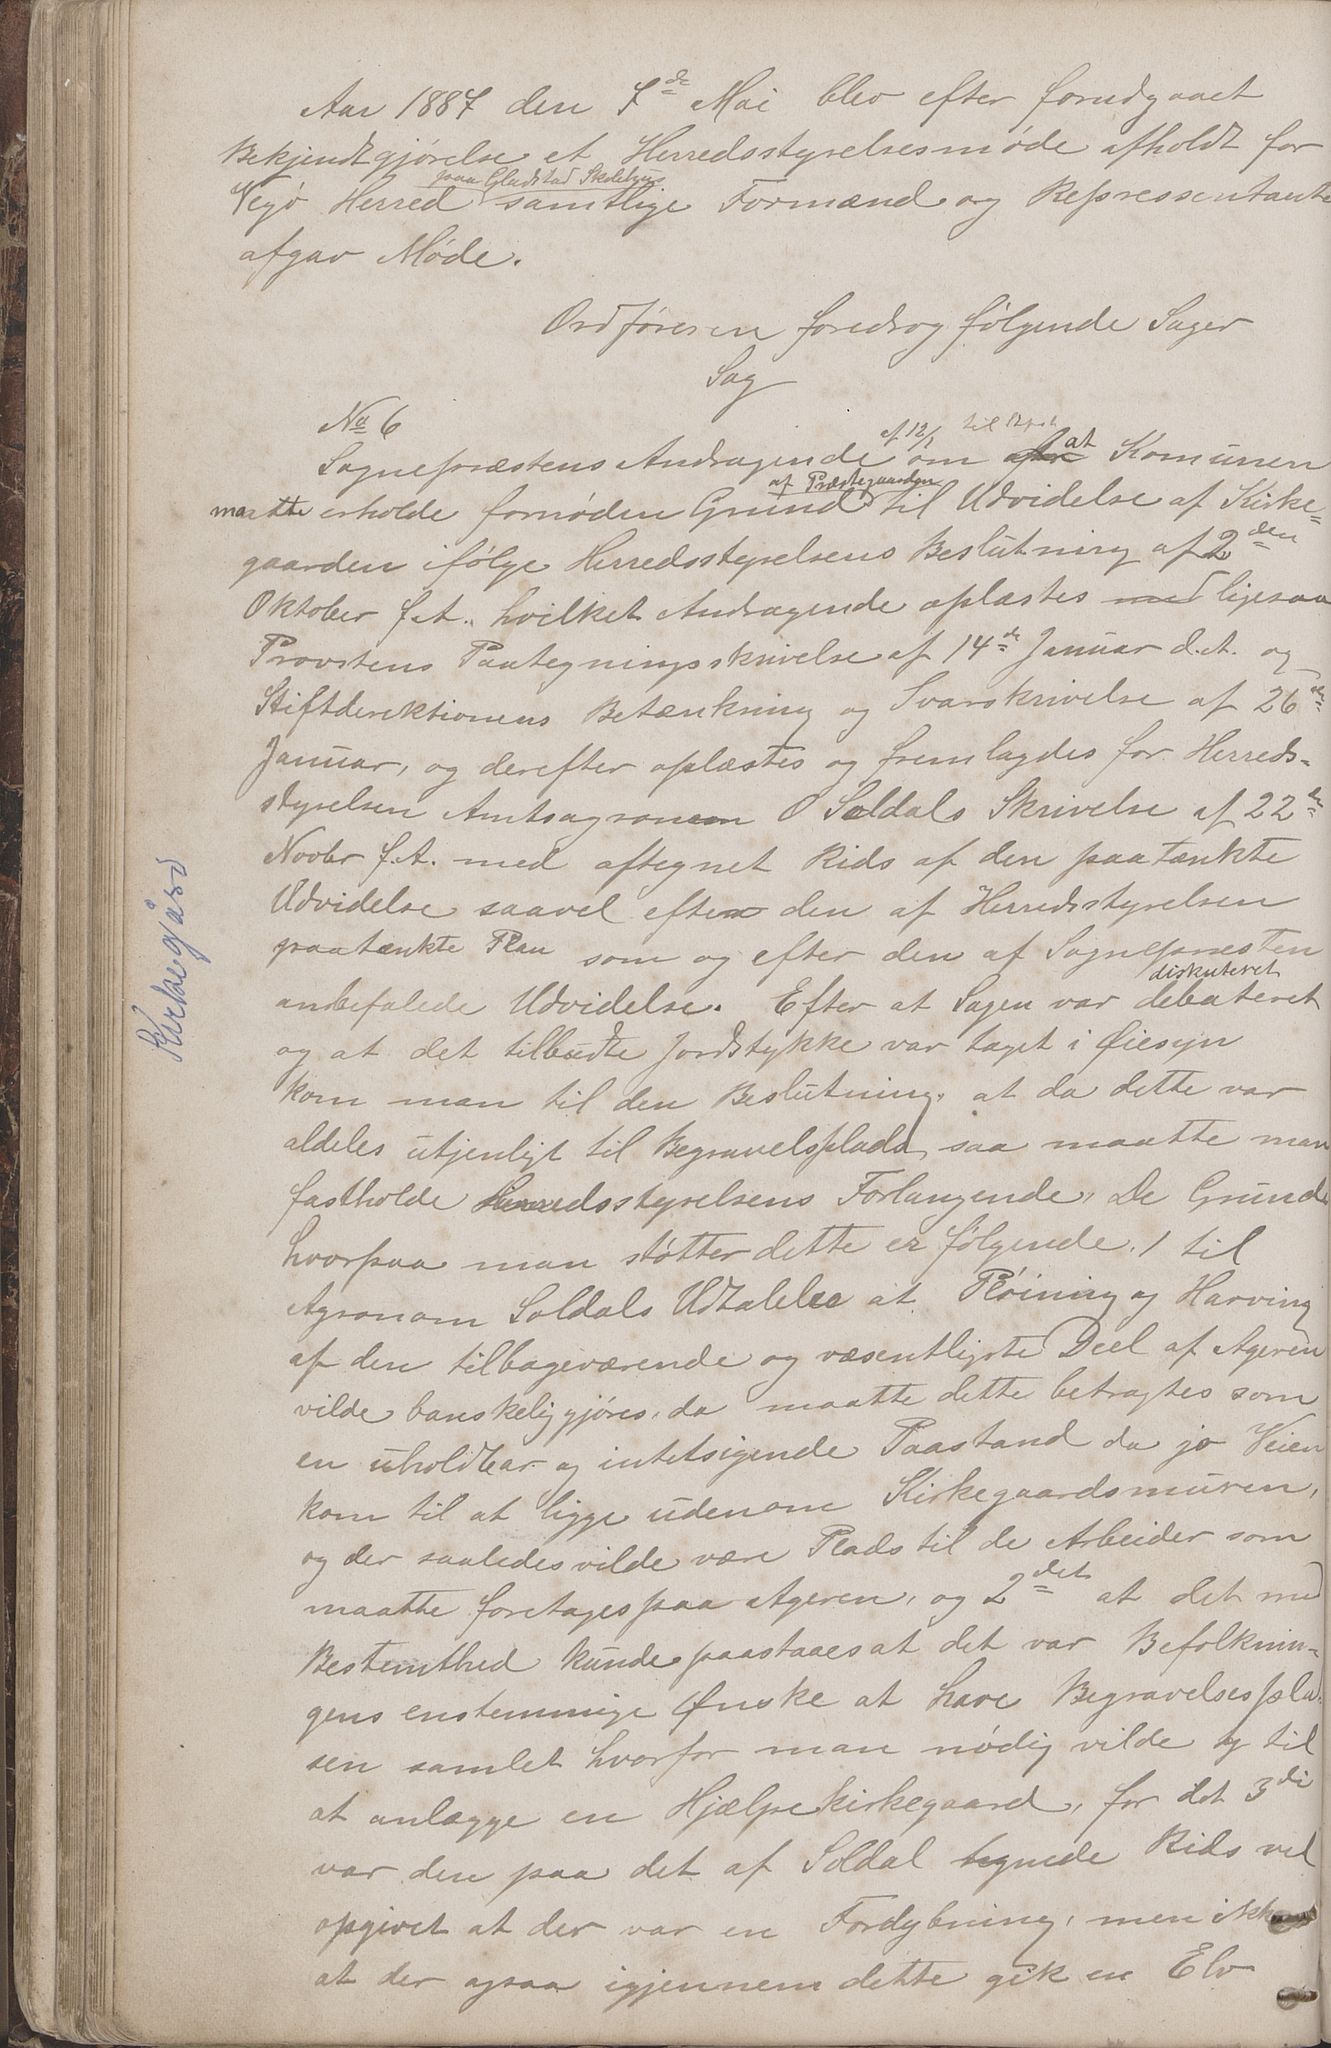 Aar 1887 den 7de Mai blev efter forudgaaet
Bekjendtgjørelse et Herredsstyrelsesmøde afholdt for
paa Gladstad Skolehus
Vegø Herred samtlige Formænd og Repressentante
afgav Møde.
Ordføreren foredrog følgende Sager
Sag
No 6
af 12/1 til
Sognepræstens Andragende om at Komunen
af Præstegaarden
maatte erholde fornøden Grund til Udvidelse af Kirke=
gaarden ifølge Herredsstyrelsens Beslutning af 2den
Oktober f.A. hvilket Andragende oplæstes med ligesaa
Provstens Paategningsskrivelse af 14de Januar d.A. og
Stiftderektionens Betænkning og Svarskrivelse af 26de
Januar, og derefter oplæstes og fremlagdes for Herreds-
styrelsen Amtsagronom O Soldals Skrivelse af 22de
Novbr f.A. med aftegnet Rids af den paatænkte
Udvidelse saavel efter den af Herredsstyrelsen
paatænkte Plan som og efter den af Sognepræsten
diskuteret
anbefalede Udvidelse. Efter at Sagen var debateret
og at det tilbudte Jordstykke var taget i Øiesyn
kom man til den Beslutning, at da dette var
aldeles utjenligt til Begravelsplads, saa maatte man
fastholde Herredsstyrelsens Forlangende, De Grunde
hvorpaa man støtter dette er følgende. 1 til
Agronom Soldals Udtalelse at Pløining og Harving
af den tilbageværende og væsentligste Deel af Ageren
vilde vanskeliggjøres, da maatte dette betragtes som
en uholdbar og intetsigende Paastand da jo Veien
kom til at ligge udenom Kirkegaardsmuren,
og der saaledes vilde være Plads til de Arbeider som
maatte foretages paa Ageren, og 2det at det med
Bestemthed kunde paastaaes at det var Befolknin-
gens enstemmige Ønske at have Begravelsespla-
sen samlet hvorfor man nødig vilde ty til
at anlægge en Hjælpekirkegaard, for det 3di
var den paa det af Soldal tegnede Rids vel
opgivet at der var en Fordybning, men ikke
at der ogsaa igjennem dette gik en Elv
Kirkegård